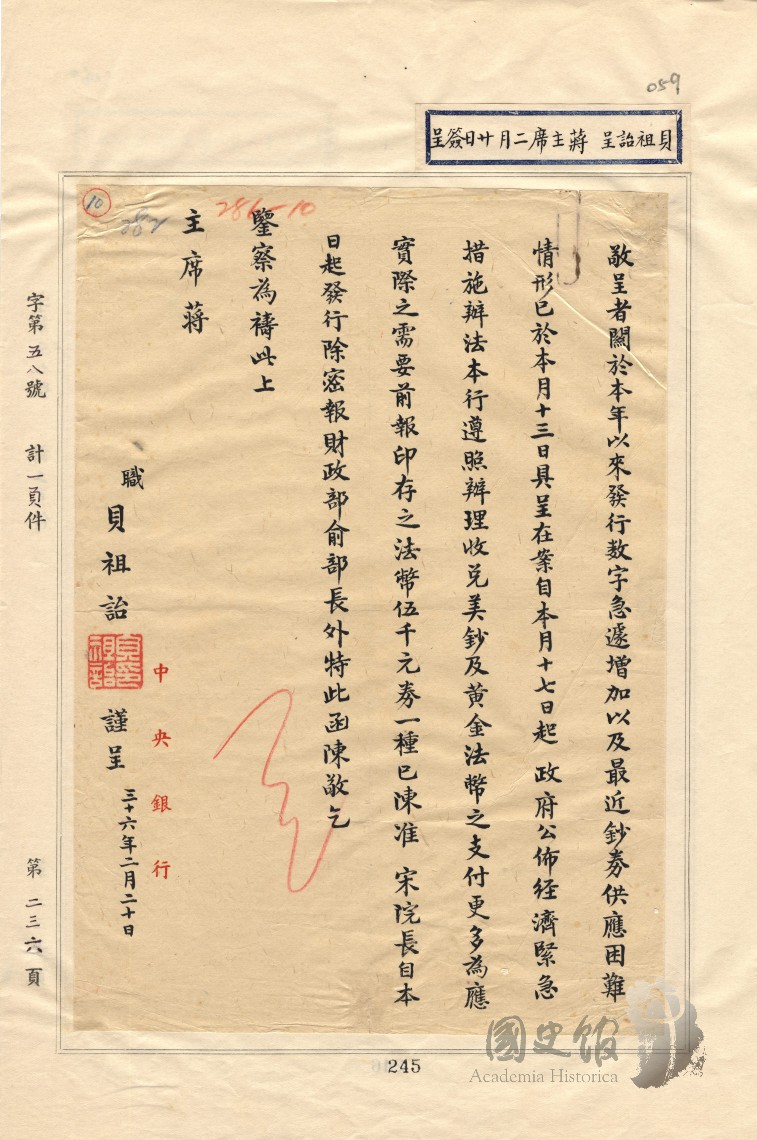 059
貝祖詒呈 蔣主席二月廿日簽呈
10
282
286-10
敬呈者關於本年以來發行数字急遽增加以及最近鈔券供應困難
情形已於本月十三日具呈在案自本月十七日起 政府公佈經濟緊急
措施辦法本行遵照辦理收兑美鈔及黄金法幣之支付更多為應
實際之需要前報印存之法幣伍千元券一種已陳准 宋院長自本
日起發行除密報財政部俞部長外特此函陳敬乞
鑒察為禱此上
主席蔣
職 貝祖詒 謹呈
中央銀行
三十六年二月二十日
字第五八號 計一頁件 第二三六頁
245
國史館
Academia Historica